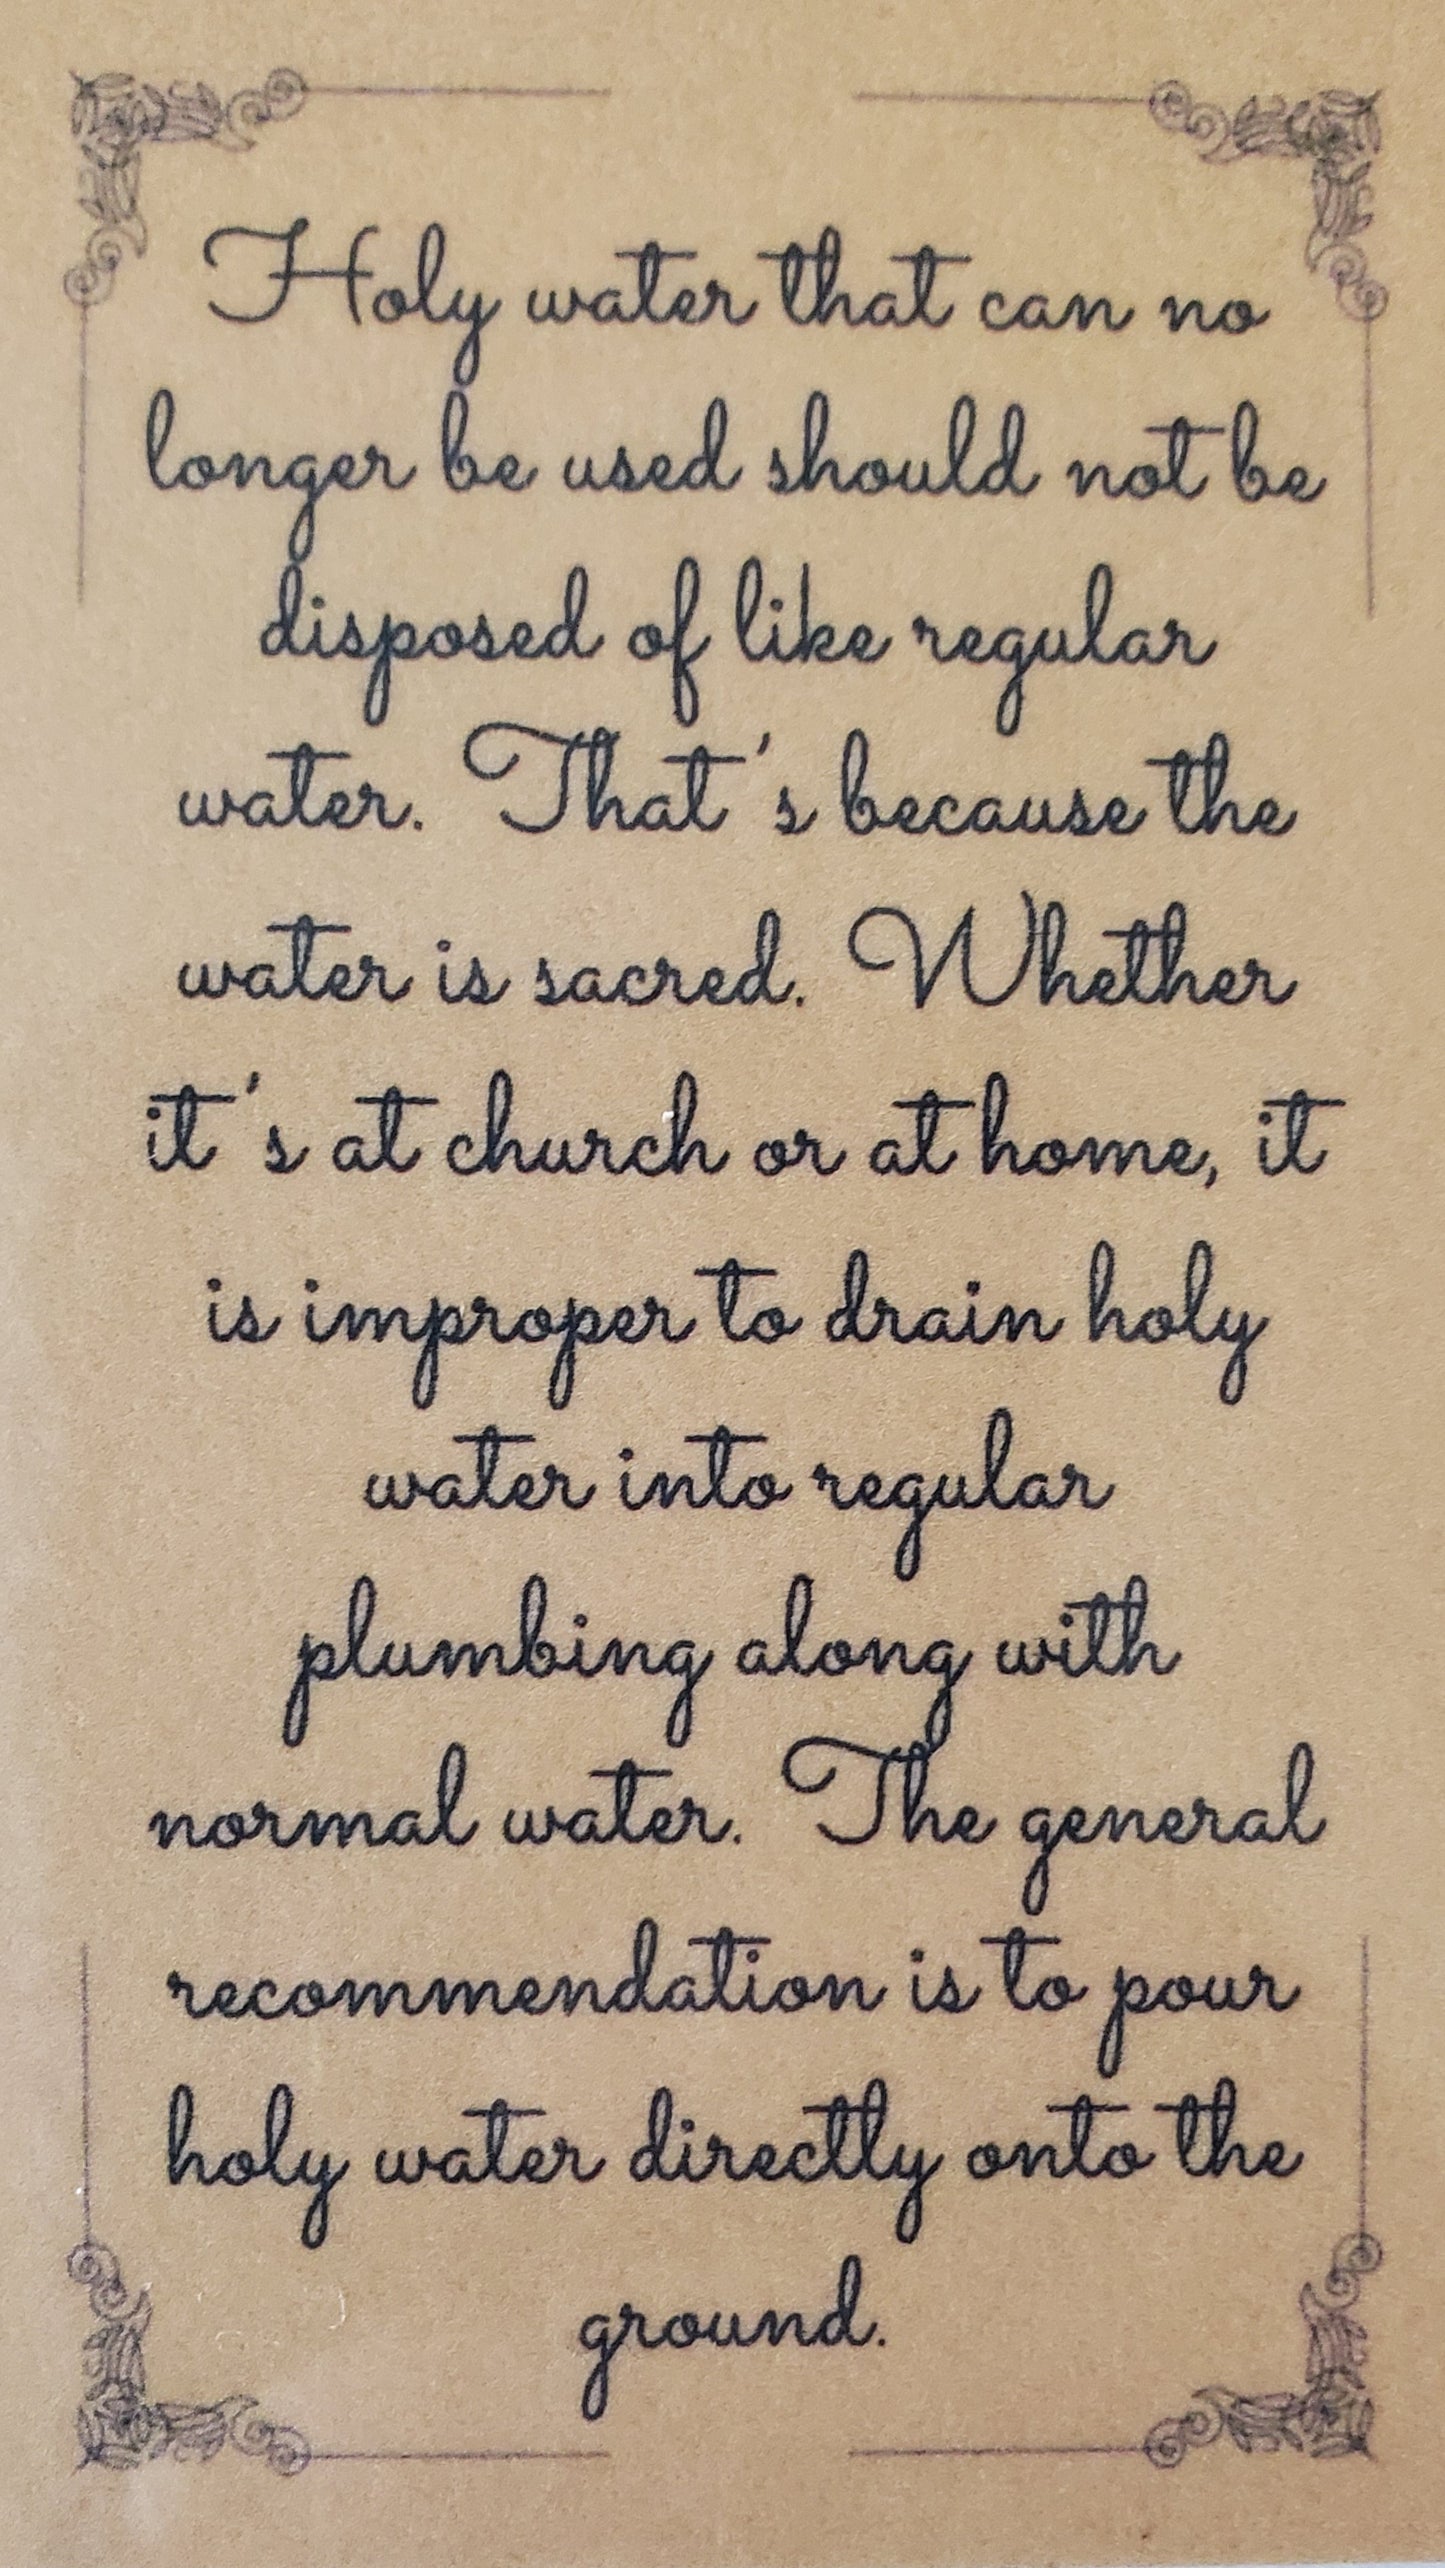 Holy water that can no
longer be used should not be
disposed of like regular
water. That's because the
water is sacred. Whether
it's at church or at home, it
is improper to drain holy
water into regular
plumbing along with
normal water. The general
recommendation is to pour
holy water directly onto the
ground.